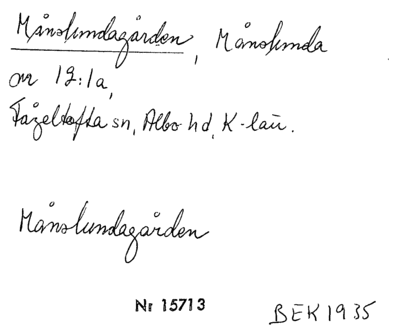 Månslundagården, Månslunda
nr 12:1a,
Fågeltofta sn, Albo hd, K-län.
Månslundagården
Nr 15713
BEK 1935